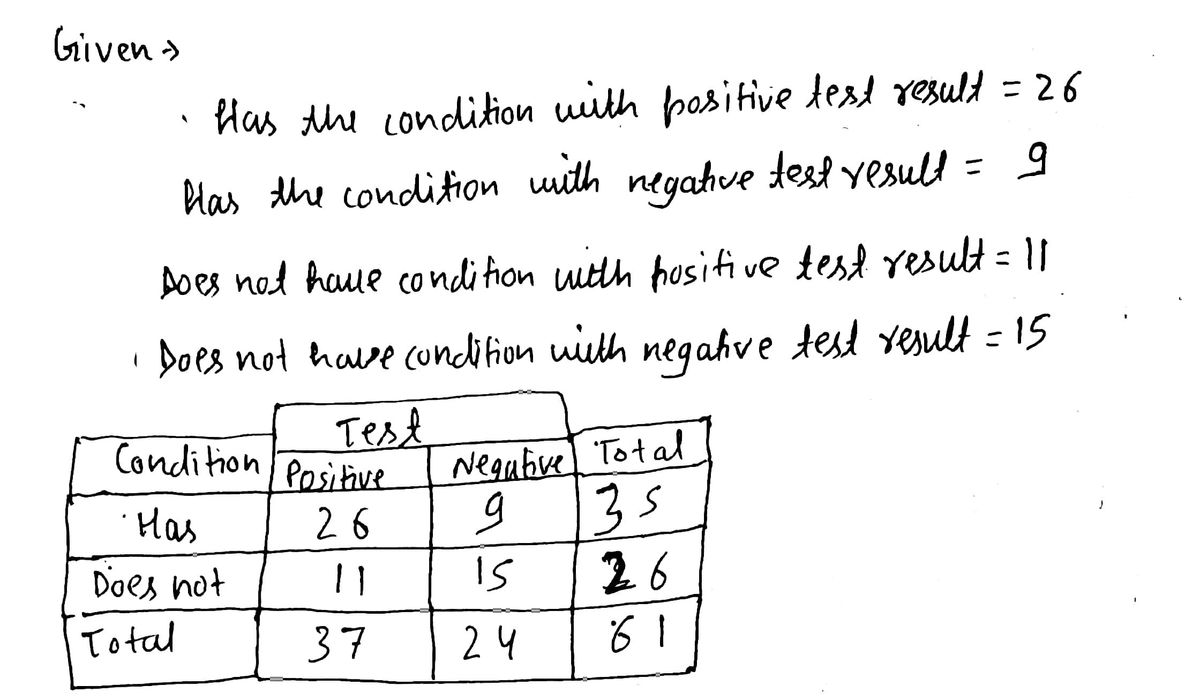 Given →
Has the condition with positive test result = 26
Has the condition with negative test result = 9
Does not have condition with positive test result = 11
Does not have condition with negative test result = 15
Test
Condition Positive Negative Total
Has 26 9 35
Does not 11 15 26
Total 37 24 61